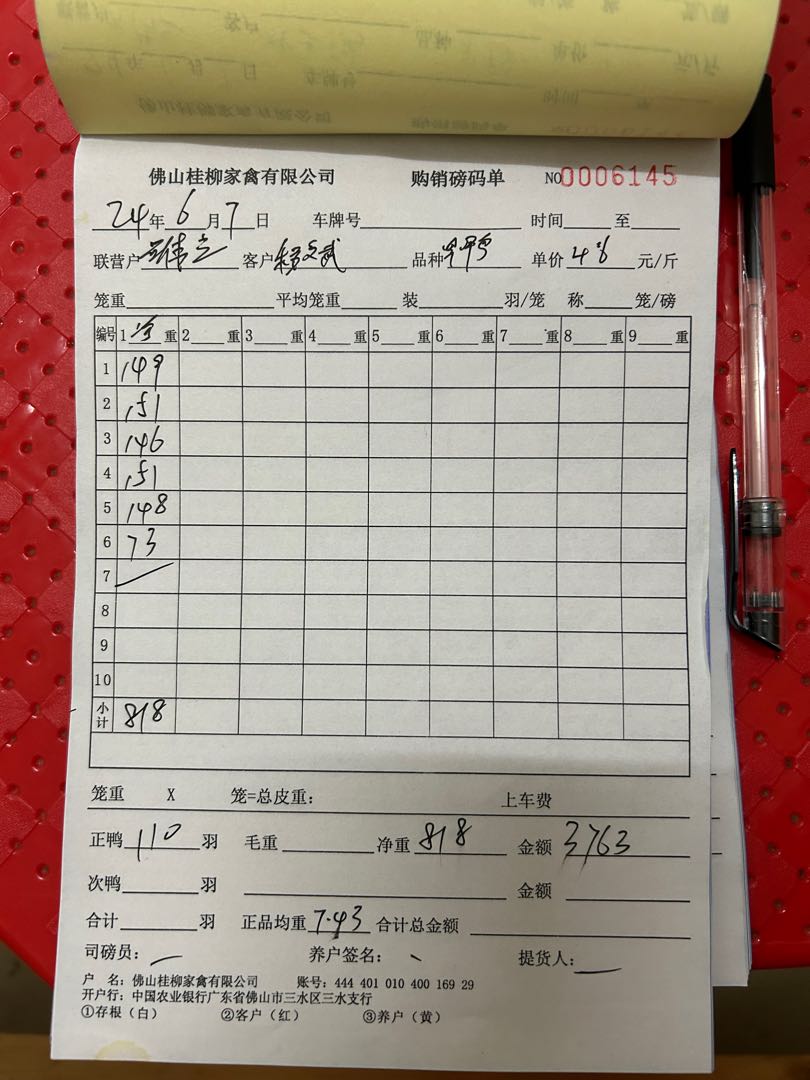 佛山桂柳家禽有限公司 购销磅码单 NO0006145
24年 6月 7日 车牌号 时间 至
联营户 客户 品种 单价 元/斤
笼重 平均笼重 装 羽/笼 称 笼/磅
编号 1 净 重 2 重 3 重 4 重 5 重 6 重 7 重 8 重 9 重
1 149
2 151
3 146
4 151
5 148
6 73
7
8
9
10
小计 818
笼重 X 笼=总皮重： 上车费
正鸭 110 羽 毛重 净重 818 金额 3763
次鸭 羽 金额
合计 羽 正品均重 7.43 合计总金额
司磅员： 养户签名： 提货人：
户 名：佛山桂柳家禽有限公司 账号：444 401 010 400 169 29
开户行：中国农业银行广东省佛山市三水区三水支行
①存根（白） ②客户（红） ③养户（黄）